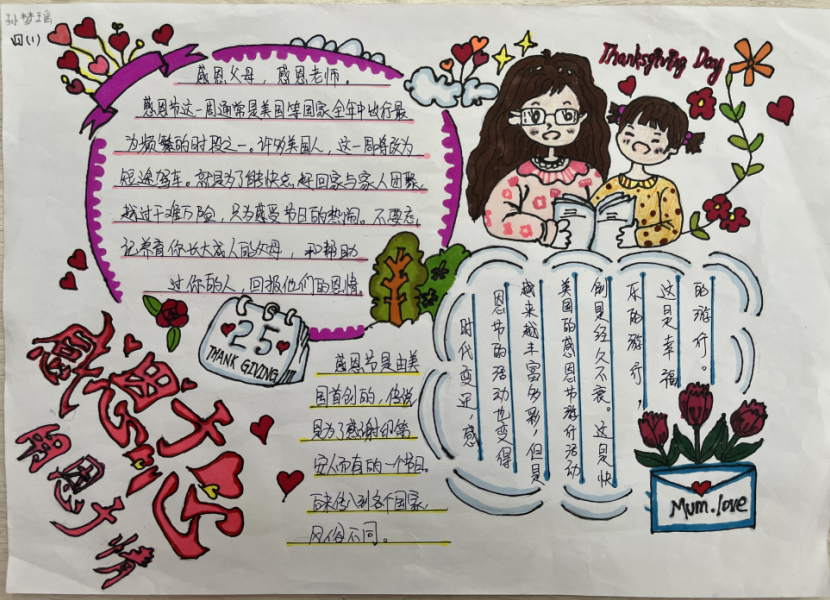 孙梦瑶
四(1)
感恩父母，感恩老师。
感恩节这一周通常是美国等国家全年中出行最
为频繁的时段之一。许多美国人，这一周将改为
短途驾车。就是为了能快点赶回家与家人团聚。
越过千难万险，只为感受节日的热闹。不要忘
记养育你长大成人的父母，和帮助
过你的人，回报他们的恩情。
Thanksgiving Day
25
THANK GIVING
感恩于心
恩于情
感恩节是由美
国首创的，传说
是为了感谢印第
安人而有的一个节日。
后来传入到各个国家，
风俗不同。
时代变迁，感
恩节的活动也变得
越来越丰富多彩，但是
美国的感恩节游行活动
却是经久不衰。这是快
乐的游行，
这是幸福
的游行。
Mum.love